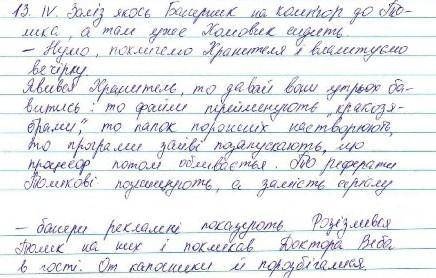 13. IV. Заліз якось Банерник на комп'ютор до То-
мика, а там уже Хомовик сидить.
– Нумо, покличемо Хранителя й влаштуємо
вечірку.
Явився Хранитель, то давай вони утрьох ба-
витись: то файли перейменують „кракозя-
брами," то папок порожніх настворюють,
то програми зайві позапускають, що
процесор потом обливається. То реферати
Томикові познищують, а замість серіалу
– банери рекламні показують. Розізлився
Томик на них і покликав Доктора Веба
в гості. От капосники й порозбігалися